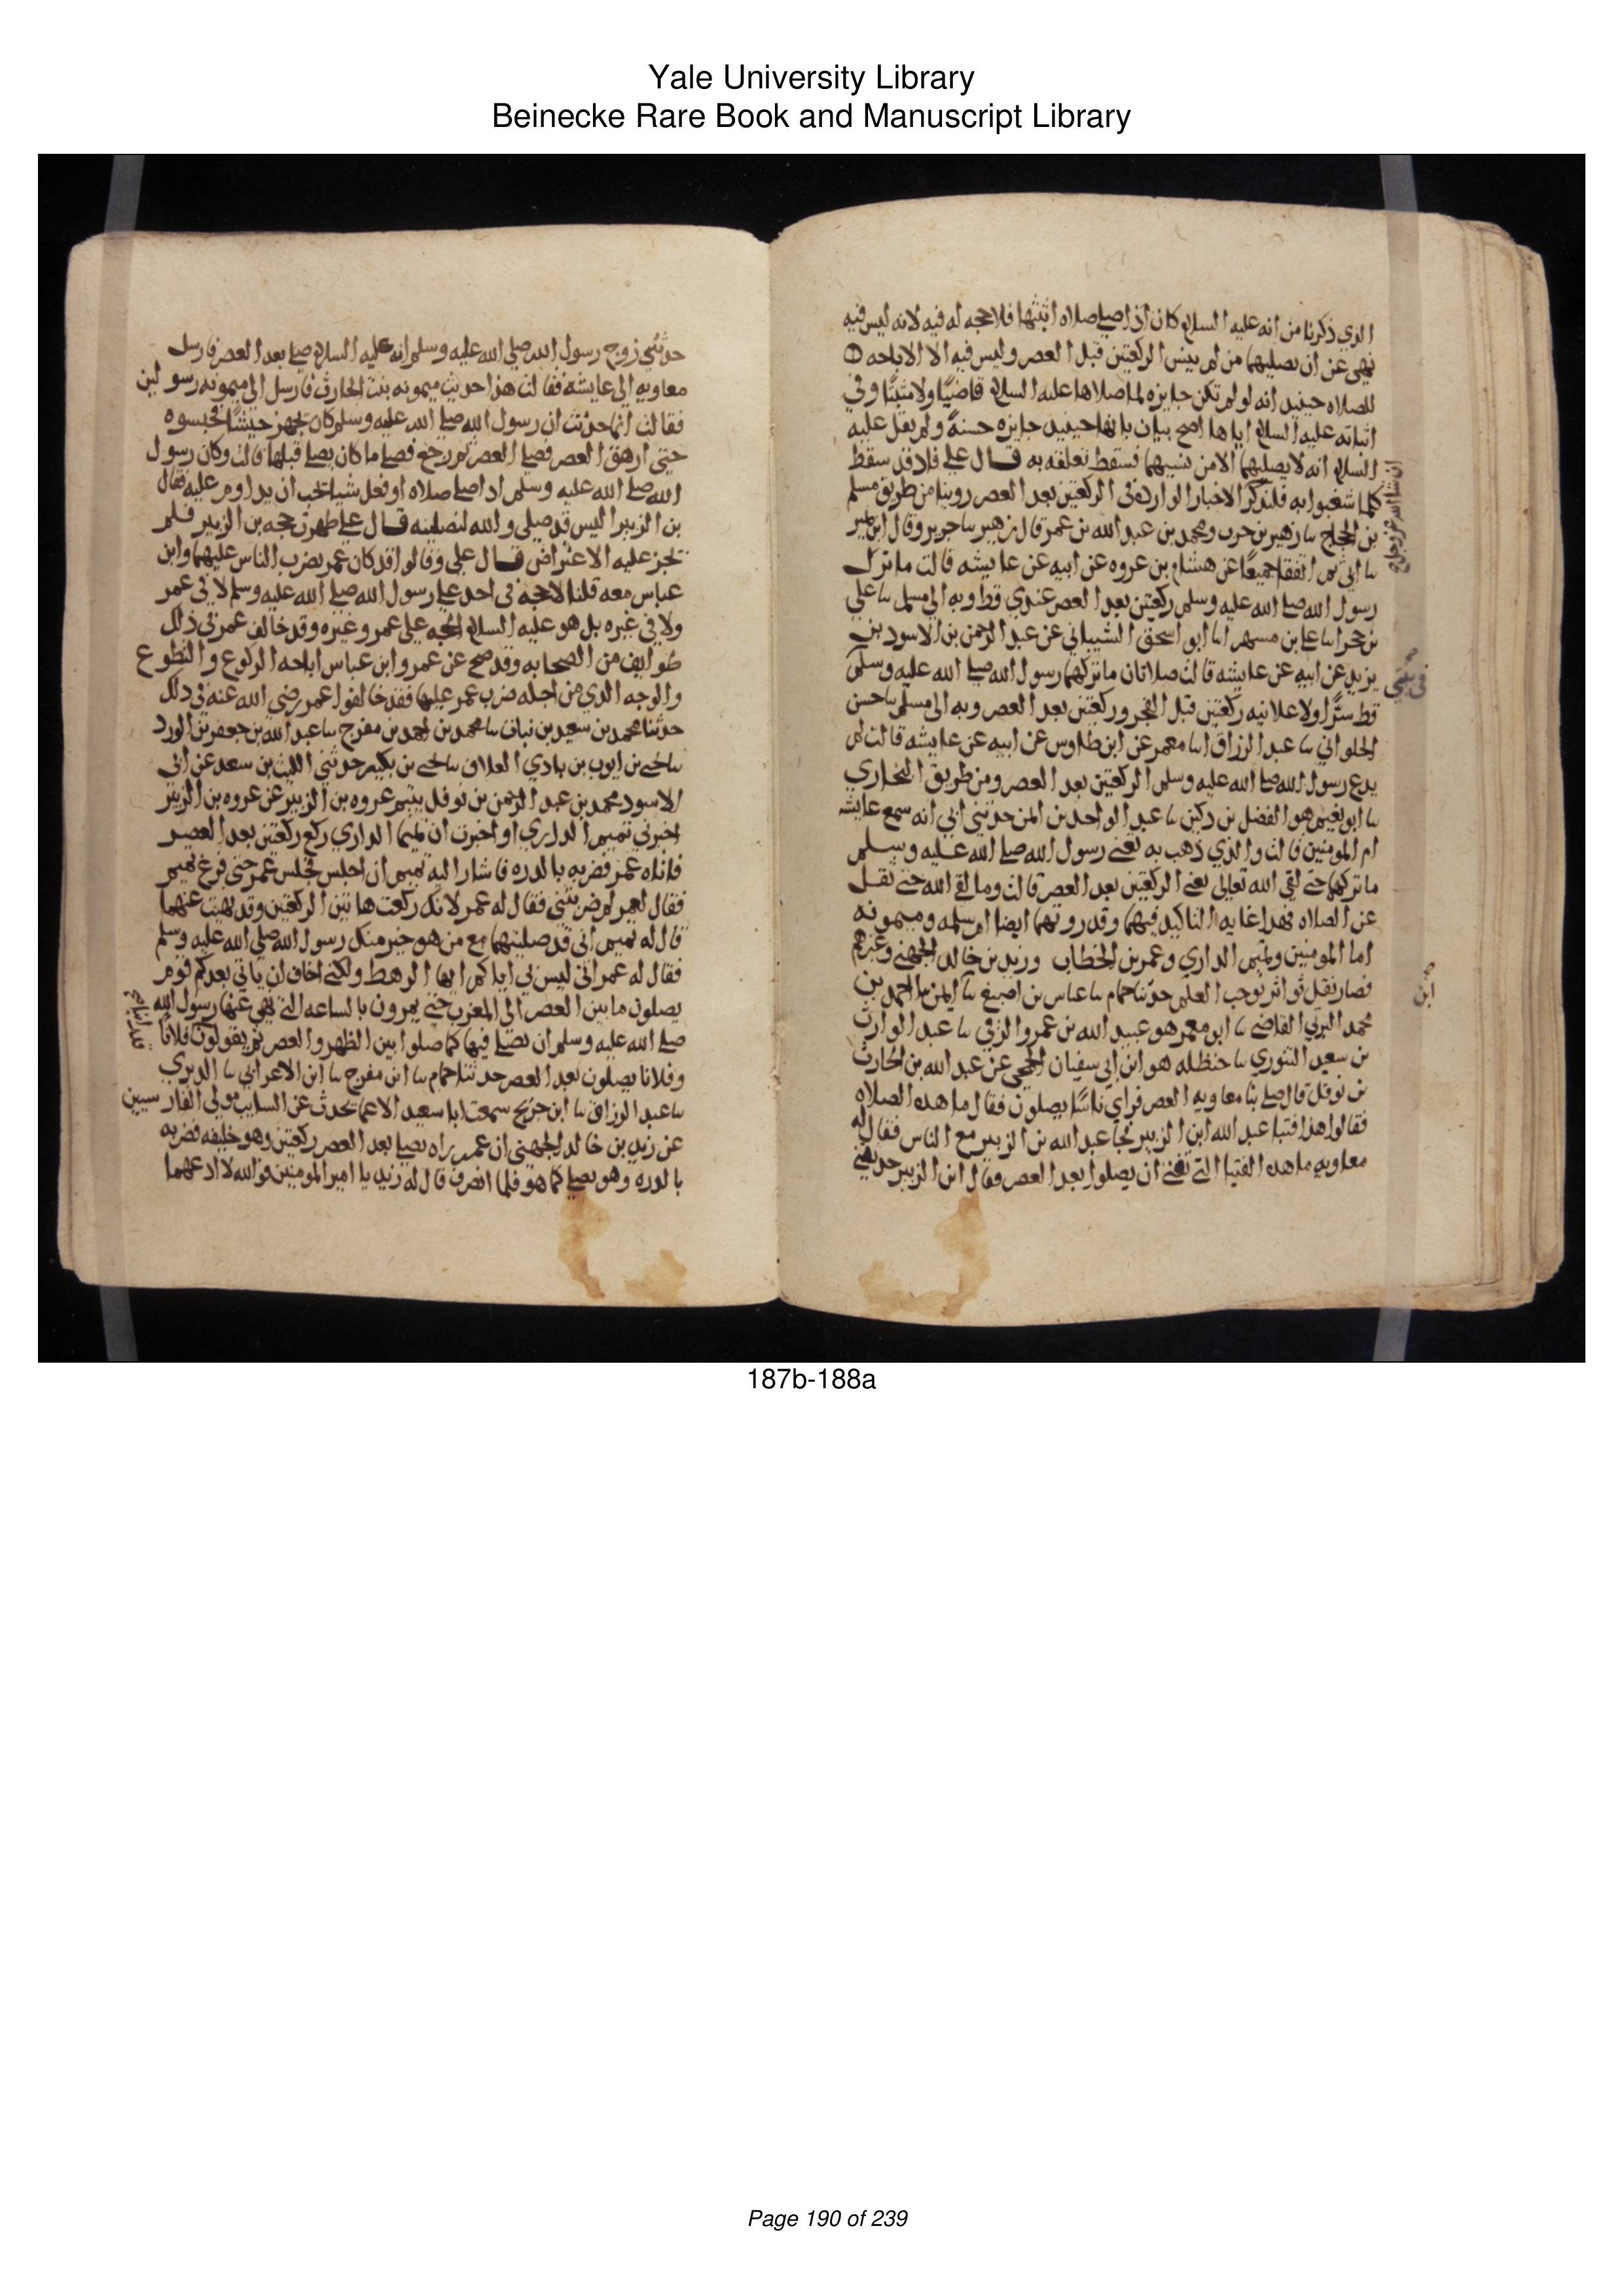 Yale University Library
Beinecke Rare Book and Manuscript Library
الذي ذكرنا من انه عليه السلام كان اذا صلى صلاه اثبتها فلا حجه له فيه لانه ليس فيه
نهي عن ان يصليهما من لم ينس الركعتين قبل العصر وليس فيه الا الاباحه
للصلاه حينيذ انه لو لم تكن جايزه لما صلاها عليه السلام قاضيًا ولا مثبتًا وفي
اثباته عليه السلام اياها اصح بيان بانها حينيذ جايزه حسنةً ولم يقل عليه
السلام انه لا يصليهما الا من نسيهما فسقط تعلقه به قال علي فاذ قد سقط
كلما شغبوا به فلنذكر الاخبار الوارده في الركعتين بعد العصر روينا من طريق مسلم
ان شا الله عز وجل صح
بن الحجاج نا زهير بن حرب ومحمد بن عبد الله بن نمير قال زهير نا جرير وقال ابن نمير
نا ابي ثم اتفقا جميعًا عن هشام بن عروه عن ابيه عن عايشه قالت ما ترك
رسول الله صلى الله عليه وسلم ركعتين بعد العصر عندي قط وبه الى مسلم نا علي
بن حجر انا علي بن مسهر انا ابو اسحق الشيباني عن عبد الرحمن بن الاسود بن
يزيد عن ابيه عن عايشه قالت صلاتان ما تركهما رسول الله صلى الله عليه وسلم
في بيتي صح
قط سرًّا ولا علانيه ركعتين قبل الفجر وركعتين بعد العصر وبه الى مسلم نا حسن
الحلواني نا عبد الرزاق انا معمر عن ابن طاوس عن ابيه عن عايشه قالت لم
يدع رسول الله صلى الله عليه وسلم الركعتين بعد العصر ومن طريق البخاري
نا ابو نعيم هو الفضل بن دكين نا عبد الواحد بن ايمن حدثني ابي انه سمع عايشه
ام المومنين قالت والذي ذهب به تعني رسول الله صلى الله عليه وسلم
ما تركهما حتى لقي الله تعالى يعني الركعتين بعد العصر قالت وما لقي الله حتى ثقل
عن الصلاه فهذا غايه التاكيد فيهما وقد روتهما ايضا ام سلمه وميمونه
اما المومنين وتميم الداري وعمر بن الخطاب وزيد بن خالد الجهني وغيرهم
فصار نقل تواتر يوجب العلم حدثنا حمام نا عباس بن اصبغ نا ايمن نا احمد بن
ابن صح
محمد البرتي القاضي نا ابو معمر هو عبد الله بن عمرو الرقي نا عبد الوارث
بن سعيد التنوري نا حنظله هو ابن ابي سفيان الجمحي عن عبد الله بن الحارث
بن نوفل قال صلى بنا معاويه العصر فراى ناسًا يصلون فقال ما هذه الصلاه
فقالوا هذا فتيا عبد الله ابن الزبير فجا عبد الله بن الزبير مع الناس فقال له
معاويه ما هذه الفتيا التي تفتي ان يصلوا بعد العصر فقال ابن الزبير حدثتني
حدثتني زوج رسول الله صلى الله عليه وسلم انه عليه السلام صلى بعد العصر فارسل
معاويه الى عايشه فقالت هذا حديث ميمونه بنت الحارث فارسل الى ميمونه رسولين
فقالت انما حدثت ان رسول الله صلى الله عليه وسلم كان يجهز جيشًا فحبسوه
حتى ارهق العصر فصلى العصر ثم رجع فصلى ما كان يصلي قبلها قالت وكان رسول
الله صلى الله عليه وسلم اذا صلى صلاه او فعل شيا يحب ان يداوم عليه فقال
بن الزبير اليس قد صلى والله لنصلينه قال علي ظهرت حجه بن الزبير فلم
تجز عليه الاعتراض قال علي وقالوا قد كان عمر يضرب الناس عليهما وابن
عباس معه قلنا لا حجه في احد على رسول الله صلى الله عليه وسلم لا في عمر
ولا في غيره بل هو عليه السلام الحجه على عمر وغيره وقد خالف عمر في ذلك
طوايف من الصحابه وقد صح عن عمر وابن عباس اباحه الركوع والتطوع
والوجه الذي من اجله ضرب عمر عليهما فقد خالفوا عمر رضي الله عنه في ذلك
حدثنا محمد بن سعيد بن نبات نا محمد بن احمد بن مفرج نا عبد الله بن جعفر بن الورد
نا يحيى بن ايوب بن بادي العلاف نا يحيى بن بكير حدثني الليث بن سعد عن ابي
الاسود محمد بن عبد الرحمن بن نوفل يتيم عروه بن الزبير عن عروه بن الزبير
اخبرني تميم الداري او اخبرت ان تميما الداري ركع ركعتين بعد العصر
فاتاه عمر فضربه بالدره فاشار اليه تميم ان اجلس فجلس عمر حتى فرغ تميم
فقال لعمر لم ضربتني فقال له عمر لانك ركعت هاتين الركعتين وقد نهيت عنهما
قال له تميم اني قد صليتهما مع من هو خير منك رسول الله صلى الله عليه وسلم
فقال له عمر اني ليس بي اياكم ايها الرهط ولكني اخاف ان ياتي بعدكم قوم
يصلون ما بين العصر الى المغرب حتى يمرون بالساعه التي نهى عنها رسول الله
صلى الله عليه وسلم ان يصلى فيها كما صلوا بين الظهر والعصر ثم يقولون قد راينا فلانًا
وفلانا يصلون بعد العصر حدثنا حمام نا ابن مفرج نا ابن الاعرابي نا الدبري
نا عبد الرزاق نا ابن جريج سمعت ابا سعيد الاعمى يحدث عن السايب مولى الفارسيين
عن زيد بن خالد الجهني ان عمر راه يصلي بعد العصر ركعتين وهو خليفه فضربه
بالدره وهو يصلي كما هو فلما انصرف قال له زيد يا امير المومنين فوالله لا ادعهما
187b-188a
Page 190 of 239